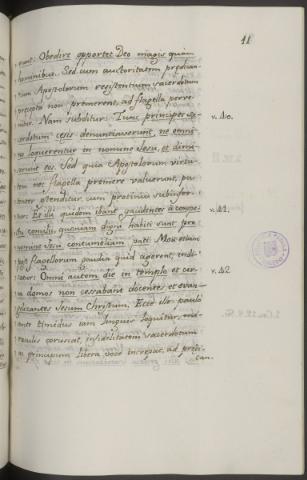 11
erunt: Obedire oportet Deo magis quàm
hominibus. Sed cum auctoritatem prædican
tium Apostolorum resistentium sacerdotum
præcepta non premerent, ad flagella perve
nitur. Nam subditur: Tunc principes sa
cerdotum cesis denuntiaverunt, ne omni
no loquerentur in nomine Jesu, et dimi
serunt eos. Sed quia Apostolorum virtu
tem nec flagella premere valuerunt, pa
tenter ostenditur, cum protinus subinfer
tur: Et illi quidem ibant gaudentes à conspe
ctu concilij, quoniam digni habiti sunt pro
nomine Jesu contumeliam pati. Mox etiam
post flagellorum gaudia quid agerent, indi
catur: Omni autem die in templo et cir
ca domos non cessabant docentes et evan
gelizantes Jesum Christum. Ecce ille paulò
ante timidus iam linguis loquitur, mi
raculis coruscat, infidelitatem sacerdotum
ac principum libera voce increpat, ad prædi
can.
v. 40.
v. 41.
v. 42